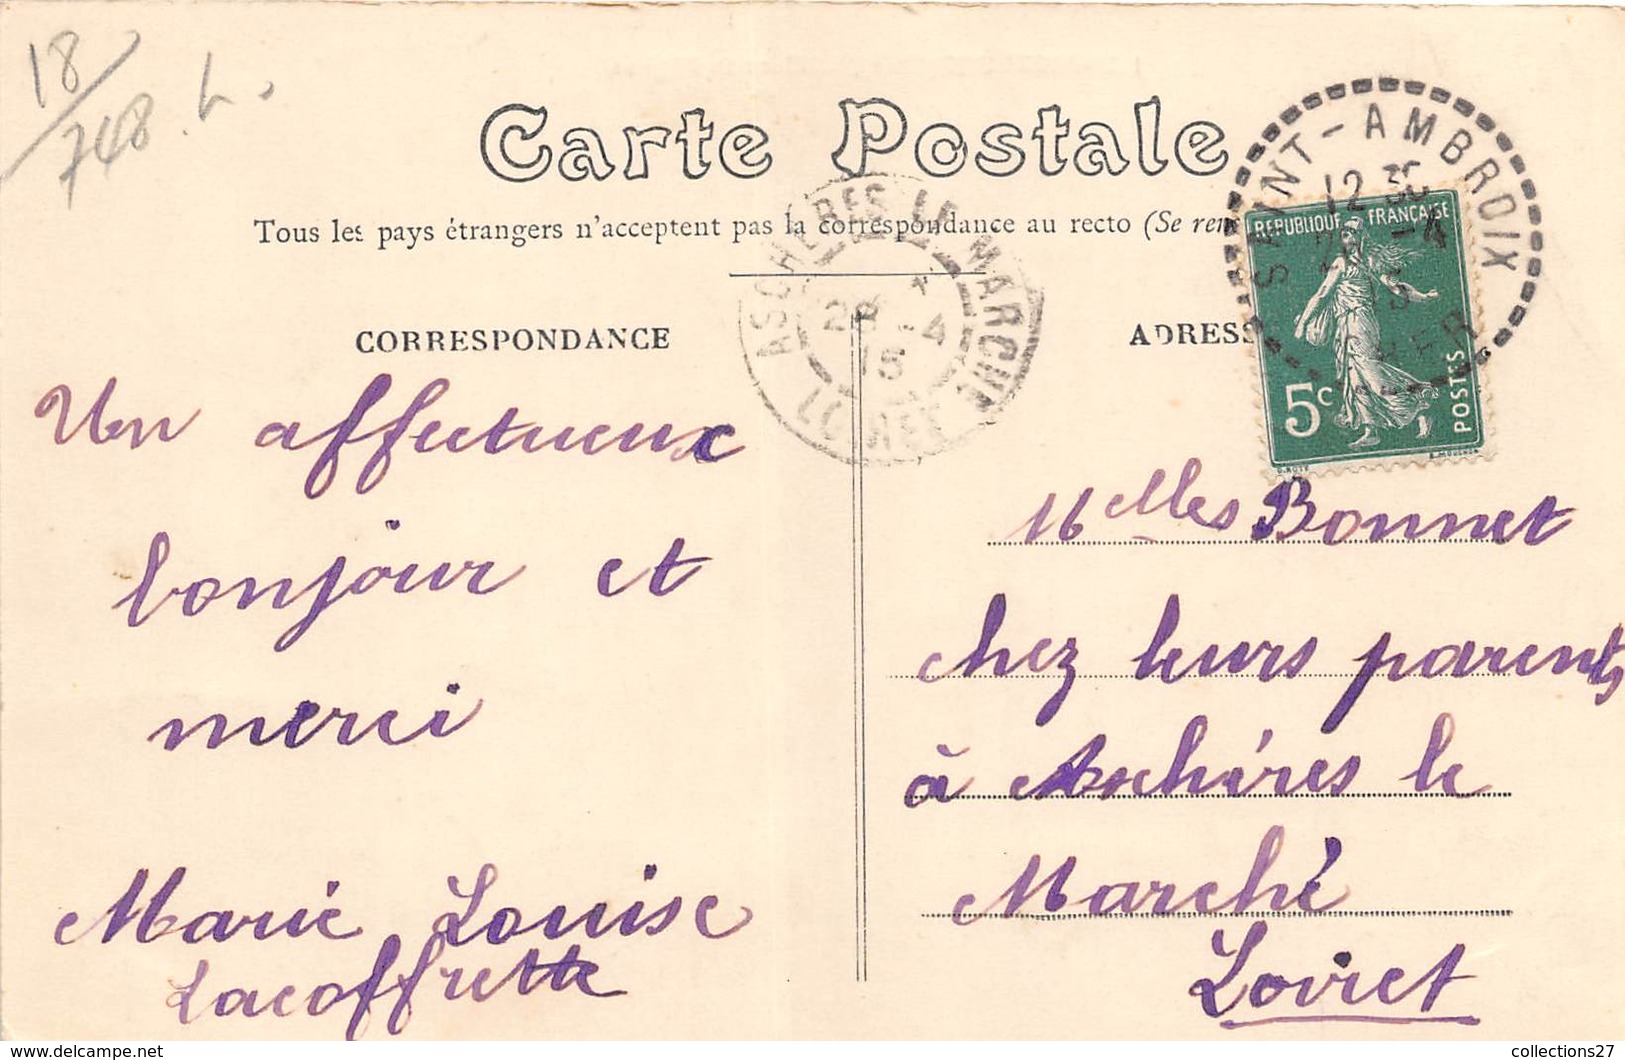 18
748. L.
Carte Postale
Tous les pays étrangers n'acceptent pas la correspondance au recto (Se ren
CORRESPONDANCE
Un affectueux
bonjour et
merci
Marie Louise
Lacoffrette
ADRESS
Melles Bonnet
chez leurs parents
à Aschères le
Marché
Loiret
ASCHERES LE MARCHE
28 -4
15
LOIRET
SAINT-AMBROIX
12 35
-4
15
CHER
REPUBLIQUE FRANÇAISE
5c
POSTES
O. ROTY
E. MOUCHON
collections27